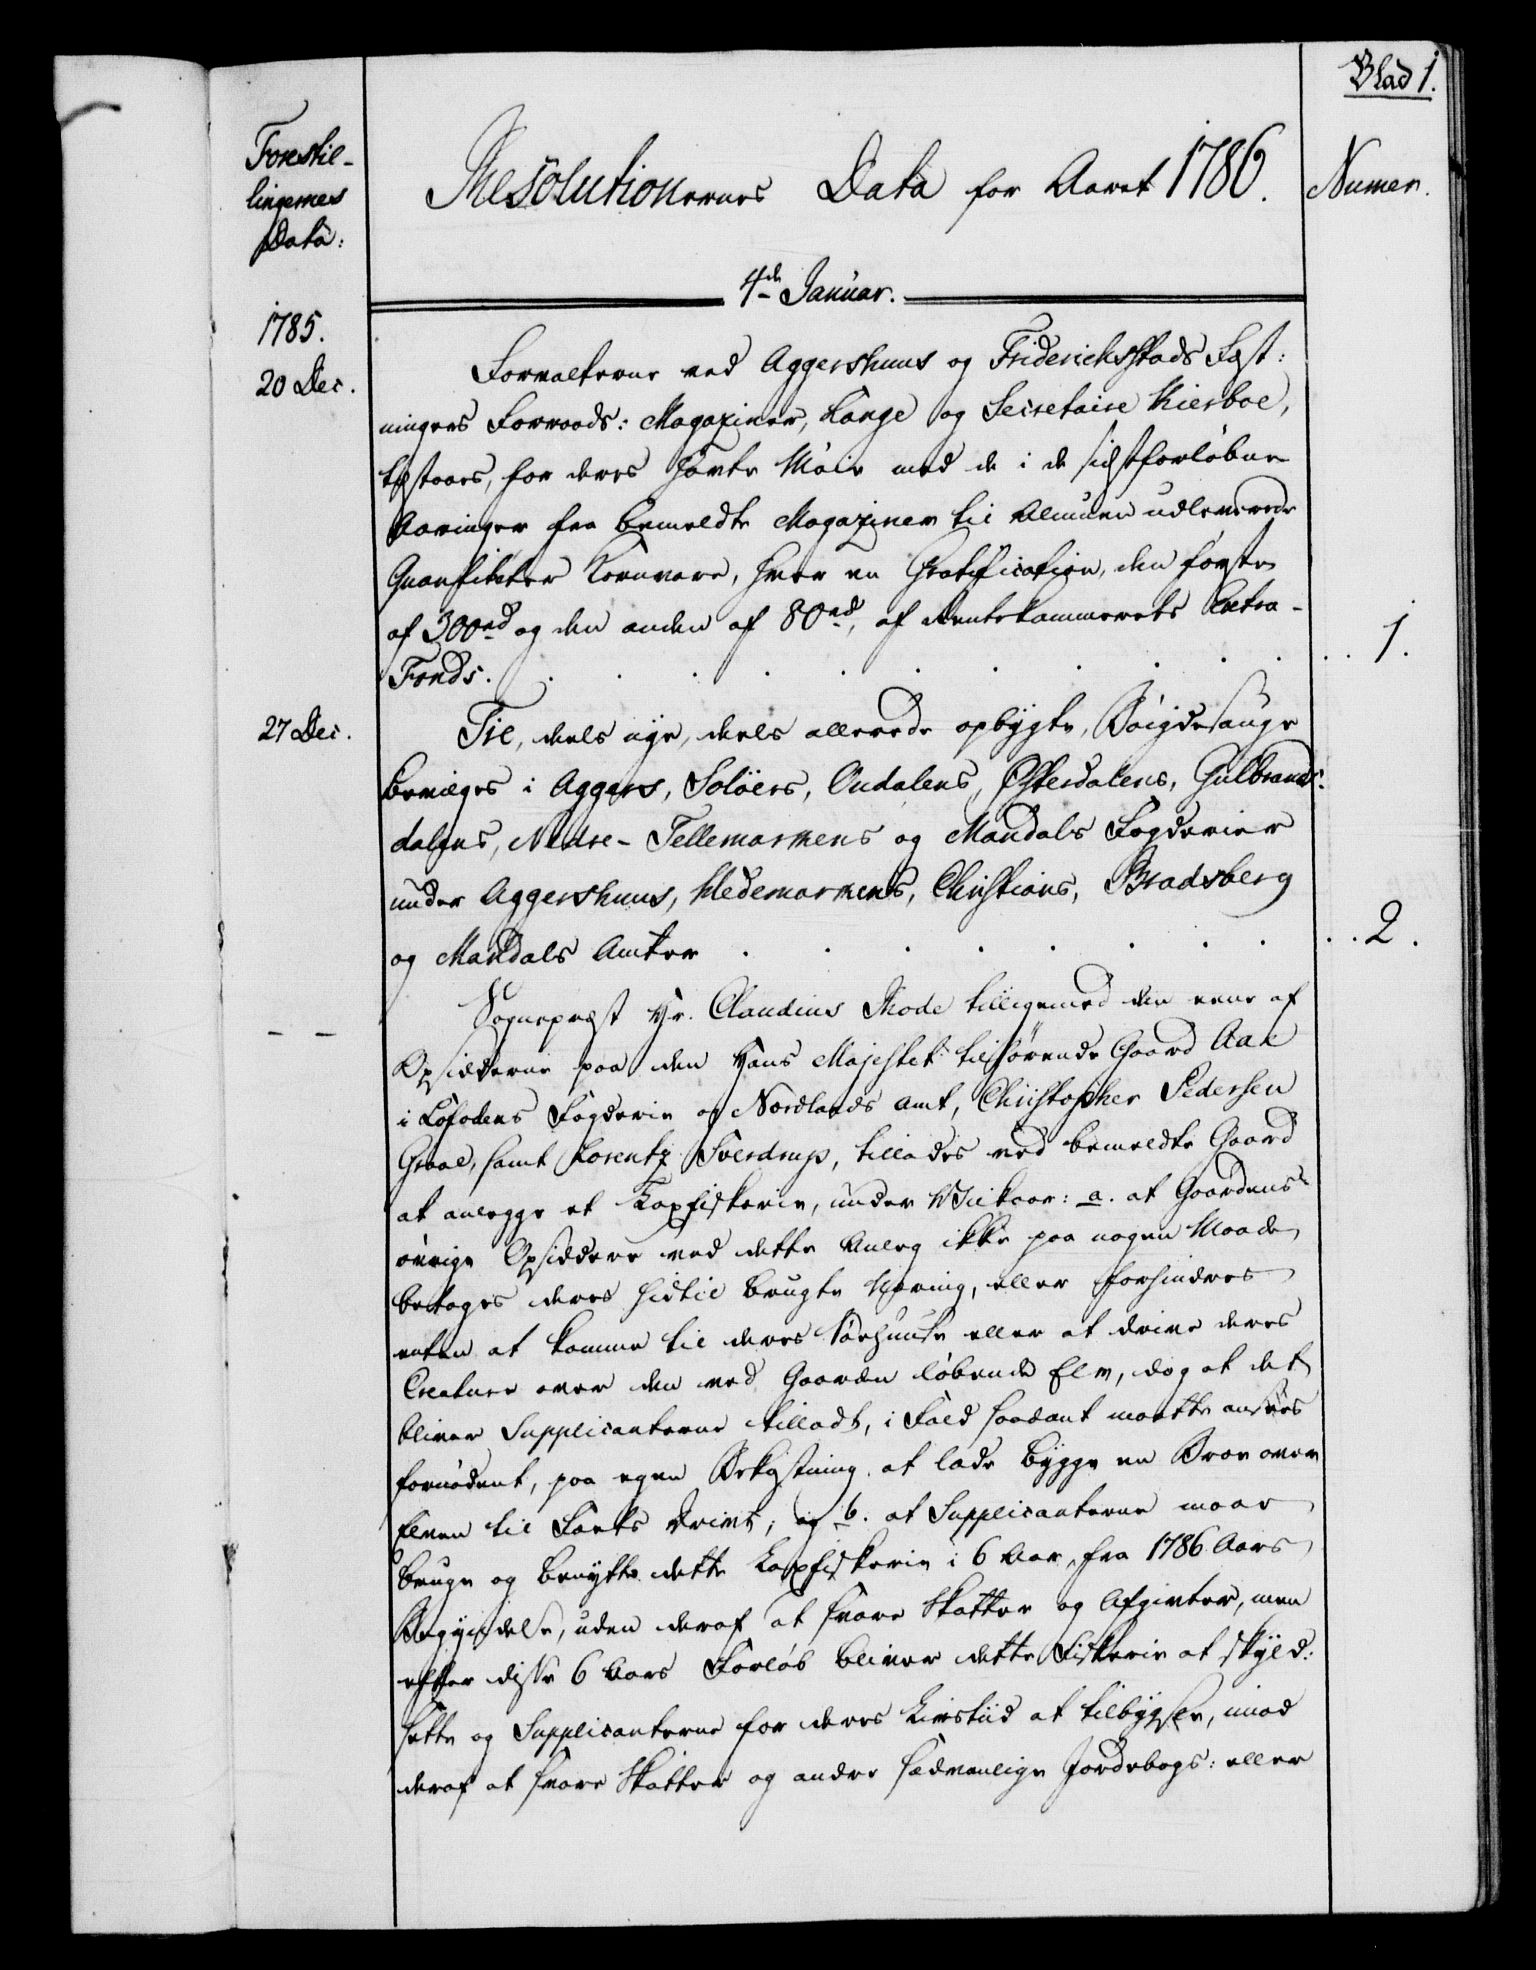 Blad 1.
Forestil-
lingernes
Data:
Resolutionernes Data for Aaret 1786.
Numer.
4de Januar.
1785.
20 Dec.
Forvalterne ved Aggershuus og Friderichsstads Fæst:
ningers Forraads: Magaziner, Lange og Secretaire Kierboe,
tilstaaes, for deres hafte Møie med de i de sidstforløbne
Aaringer fra bemeldte Magaziner til Almuen udleverede
Quantiteter Kornvare, hver en Gratification, den første
af 300rd og den anden af 80rd, af Rentekammerets Extra-
Fonds. . . . . . . . . . . . 1.
27 Dec.
Tie, deels nye, deels allerede opbygte, Bøigdesauge
bevilges i Aggers, Soløers, Oudalens, Østerdalens, Gulbrands:
dalens, Nedre-Tellemarkens og Mandals Fogderier
under Aggershuus, Hedemarkens, Christians, Bradsberg
og Mandals Amter . . . . . . . . . 2.
— —
Sognepræst Hr. Claudius Thode tilligemed den eene af
Opsidderne paa den Hans Majestet tilhørende Gaard Aae
i Lofodens Fogderie og Nordlands Amt, Christopher Pedersen
Graae, samt Lorentz Sverdrup, tillades ved bemeldte Gaard
at anlegge et Laxfiskerie, under Vilkaar: a. at Gaardens
øvrige Opsiddere ved dette Anleg ikke paa nogen Maade
betages deres hidtil brugte Næring, eller forhindres
enten at komme til deres Søehuuse eller at drive deres
Creature over den ved Gaarden løbende Elv, dog at det
bliver Supplicanterne tilladt, i Fald saadant maatte ansees
fornødent, paa egen Bekostning at lade bygge en Broe over
Elven til Fæets Drivt; og b. at Supplicanterne maae
bruge og benytte dette Laxfiskerie i 6 Aar, fra 1786 Aars
Begyndelse, uden deraf at svare Skatter og Afgivter, men
efter disse 6 Aars Forløb bliver dette Fiskerie at skyld:
sette og Supplicanterne for deres Livstiid at tilbygsle, imod
deraf at svare Skatter og andre sædvanlige Jordebogs: eller